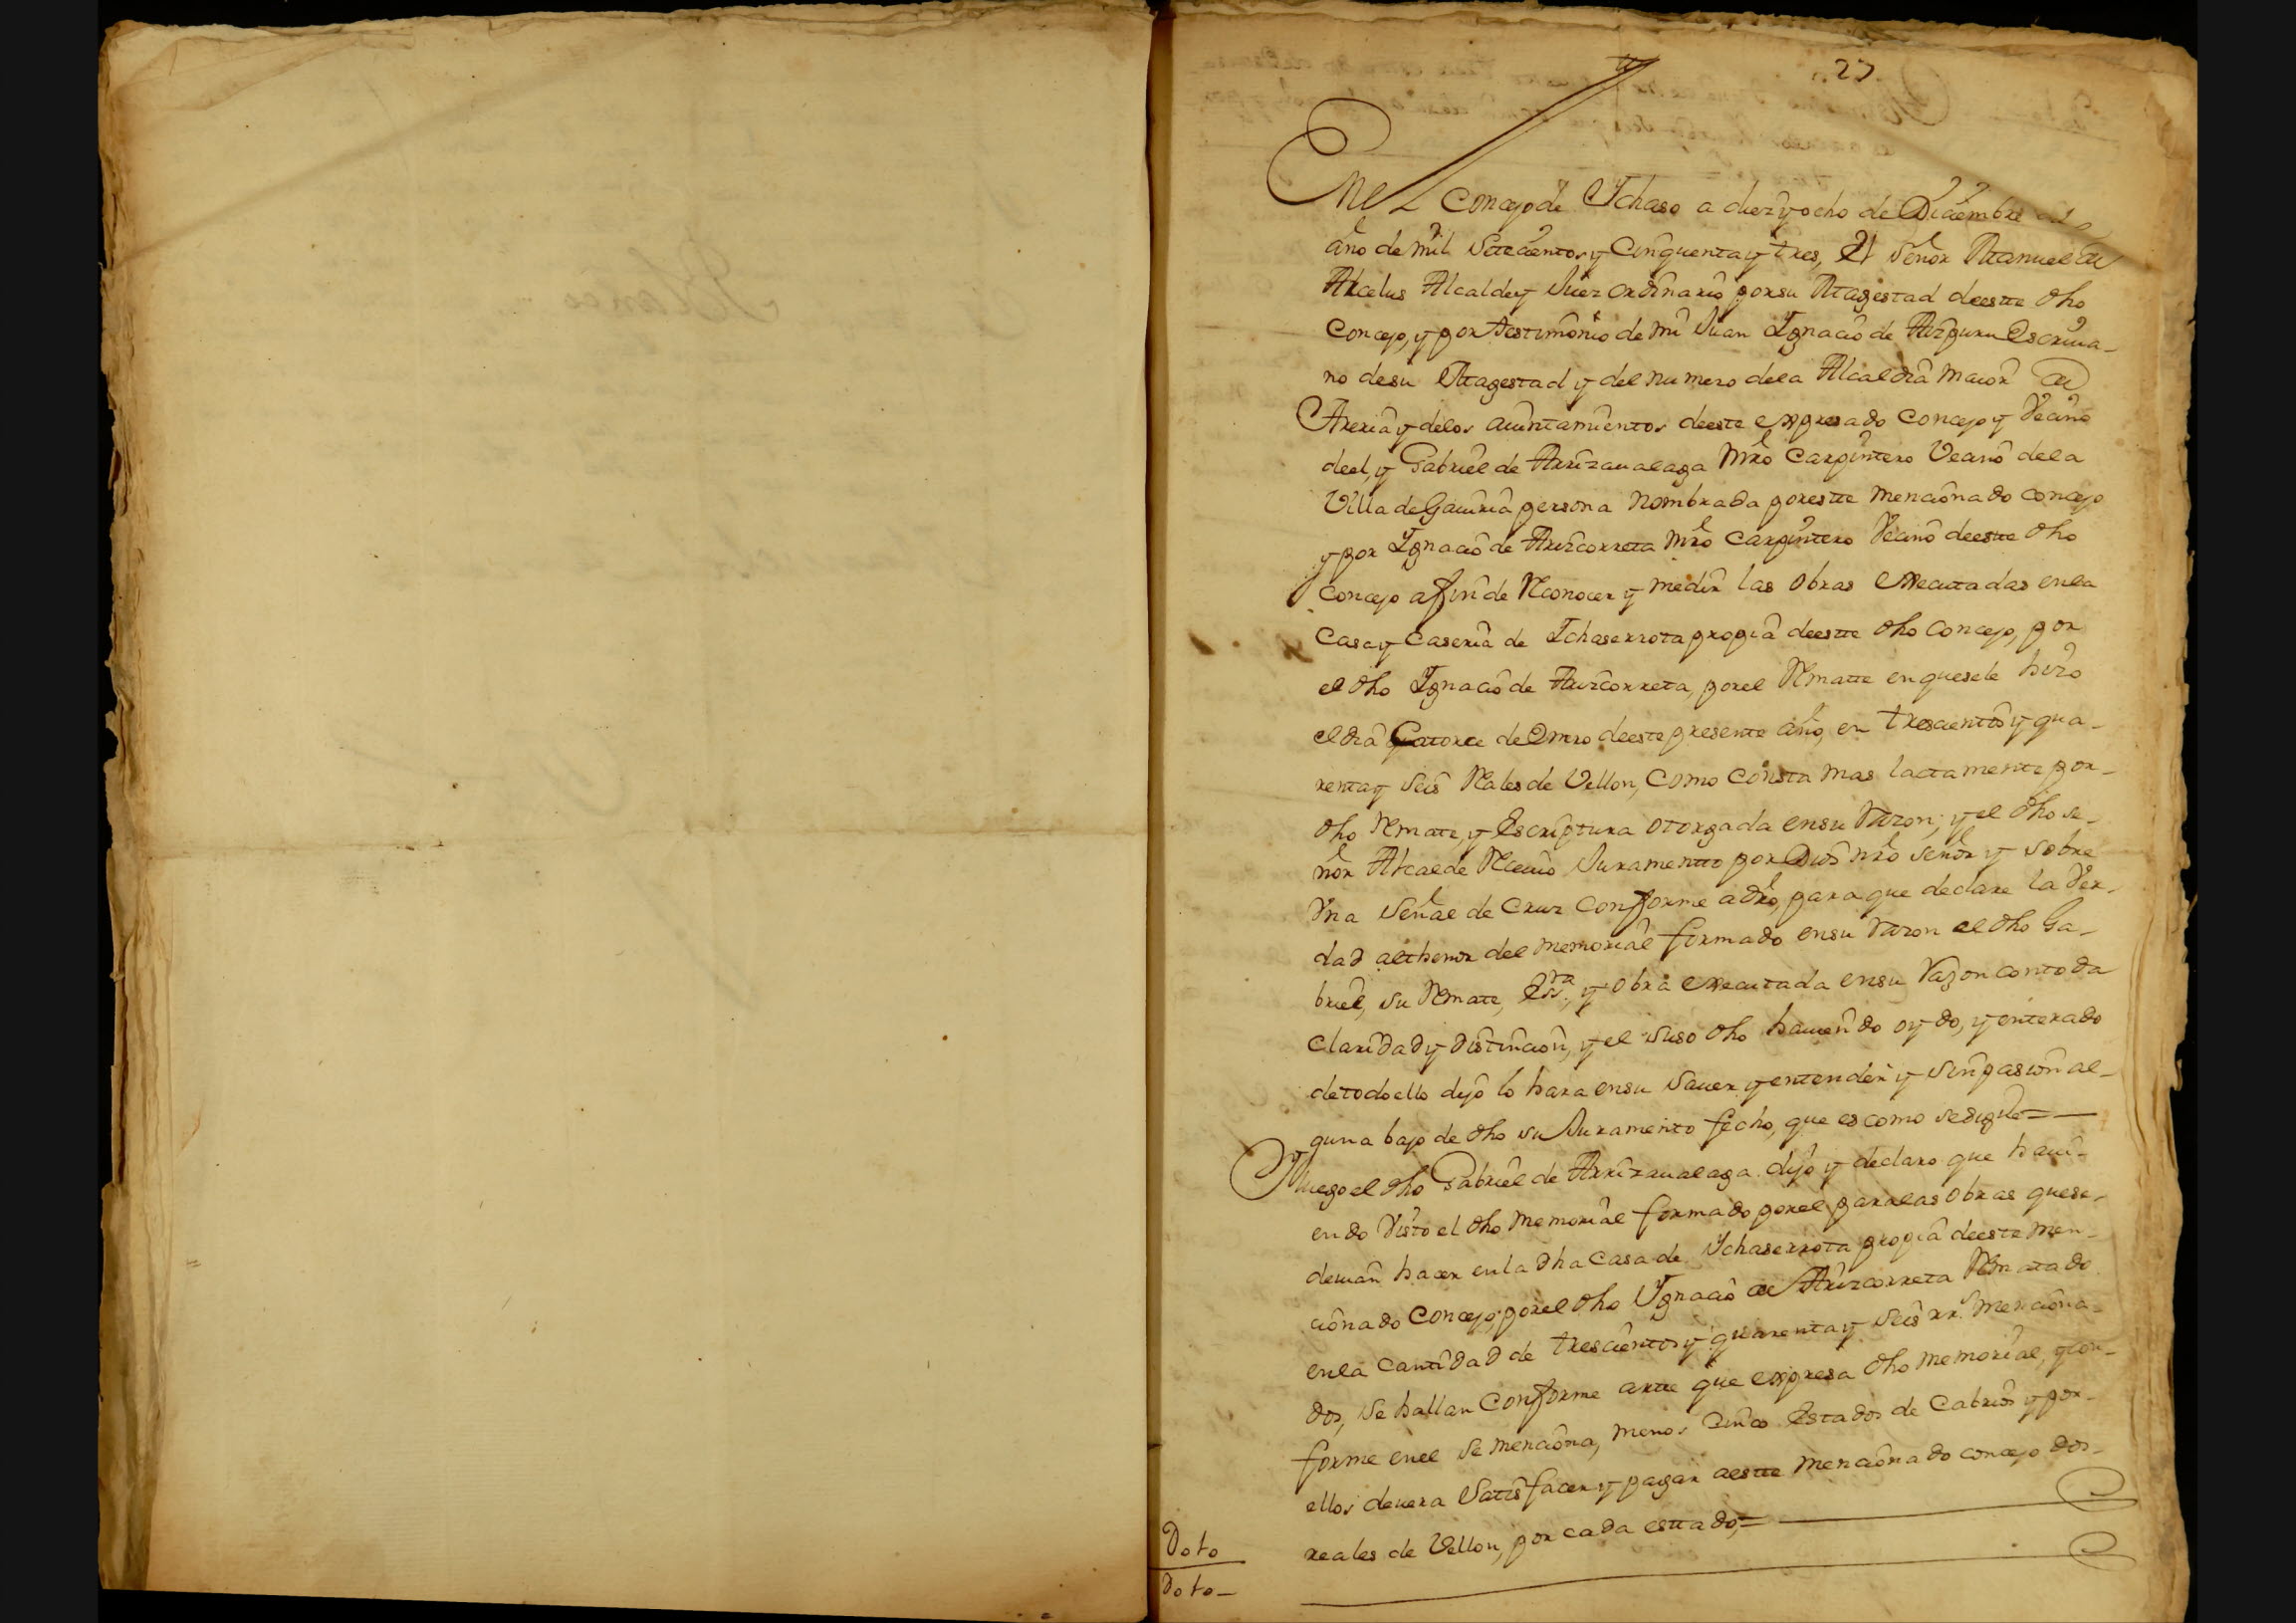 27
En el Concejo de Ychaso a diez y ocho de Diciembre del
año de mil Setecientos y Cinquenta y tres, El Señor Manuel de
Arcelus Alcalde y Juez ordinario por su Magestad de estte dho
Concejo, y por testimonio de mi Juan Ygnacio de Aizpuru Escriua-
no de su Magestad y del numero de la Alcaldia maior de
Areria y delos aiuntamientos de este expresado Concejo y Vecino
de el, y Gabriel de Arrizaualaga Mro Carpintero Vecino de la
Villa de Gauiria persona Nombrada por estte mencionado concejo
y por Ygnacio de Arizcorreta Mro Carpintero Vecino de estte dho
Concejo a fin de Reconocer y medir las obras executadas en la
Casa y Caseria de Ychaserrota propia de estte dho Concejo, por
el dho Ygnacio de Arizcorreta, por el Rematte en que se le hizo
el dia Catorce de Enero de este presente año, en trescientos y qua-
renta y Seis Reales de Vellon, como consta mas lactamente por
dho Remate, y Escriptura otorgada en su Razon; y el dho Se-
ñor Alcalde Reciuio Juramentto por Dios nro Señor y sobre
Vna Señal de Cruz conforme a dro, para que declare la Ver-
dad al thenor del memorial formado en su Razon el dho Ga-
briel, su Remate, Essra, y obra executada en su Razon con toda
claridad y distincion, y el suso dho hauiendo oydo, y enterado
de todo ello dijo lo hara en su Sauer y entender y sin pasion al-
guna bajo de dho su Juramento fecho, que es como se sigue =
Y luego el dho Gabriel de Arrizaualaga dijo y declaro que haui-
endo Visto el dho memorial formado por el para las obras que se
deuian hacer en la dha Casa de Ychaserrota propia de este men-
cionado Concejo, por el dho Ygnacio de Arizcorreta Rematado
en la cantidad de trescientos y quarenta y Seis rrs menciona-
dos, se hallan Conforme artte que expresa dho memorial, y con-
forme en el se menciona, menos Cinco Estados de Cabrios y por
ellos deuera Satisfacer y pagar a estte mencionado concejo dos
reales de Vellon, por cada esttado, =